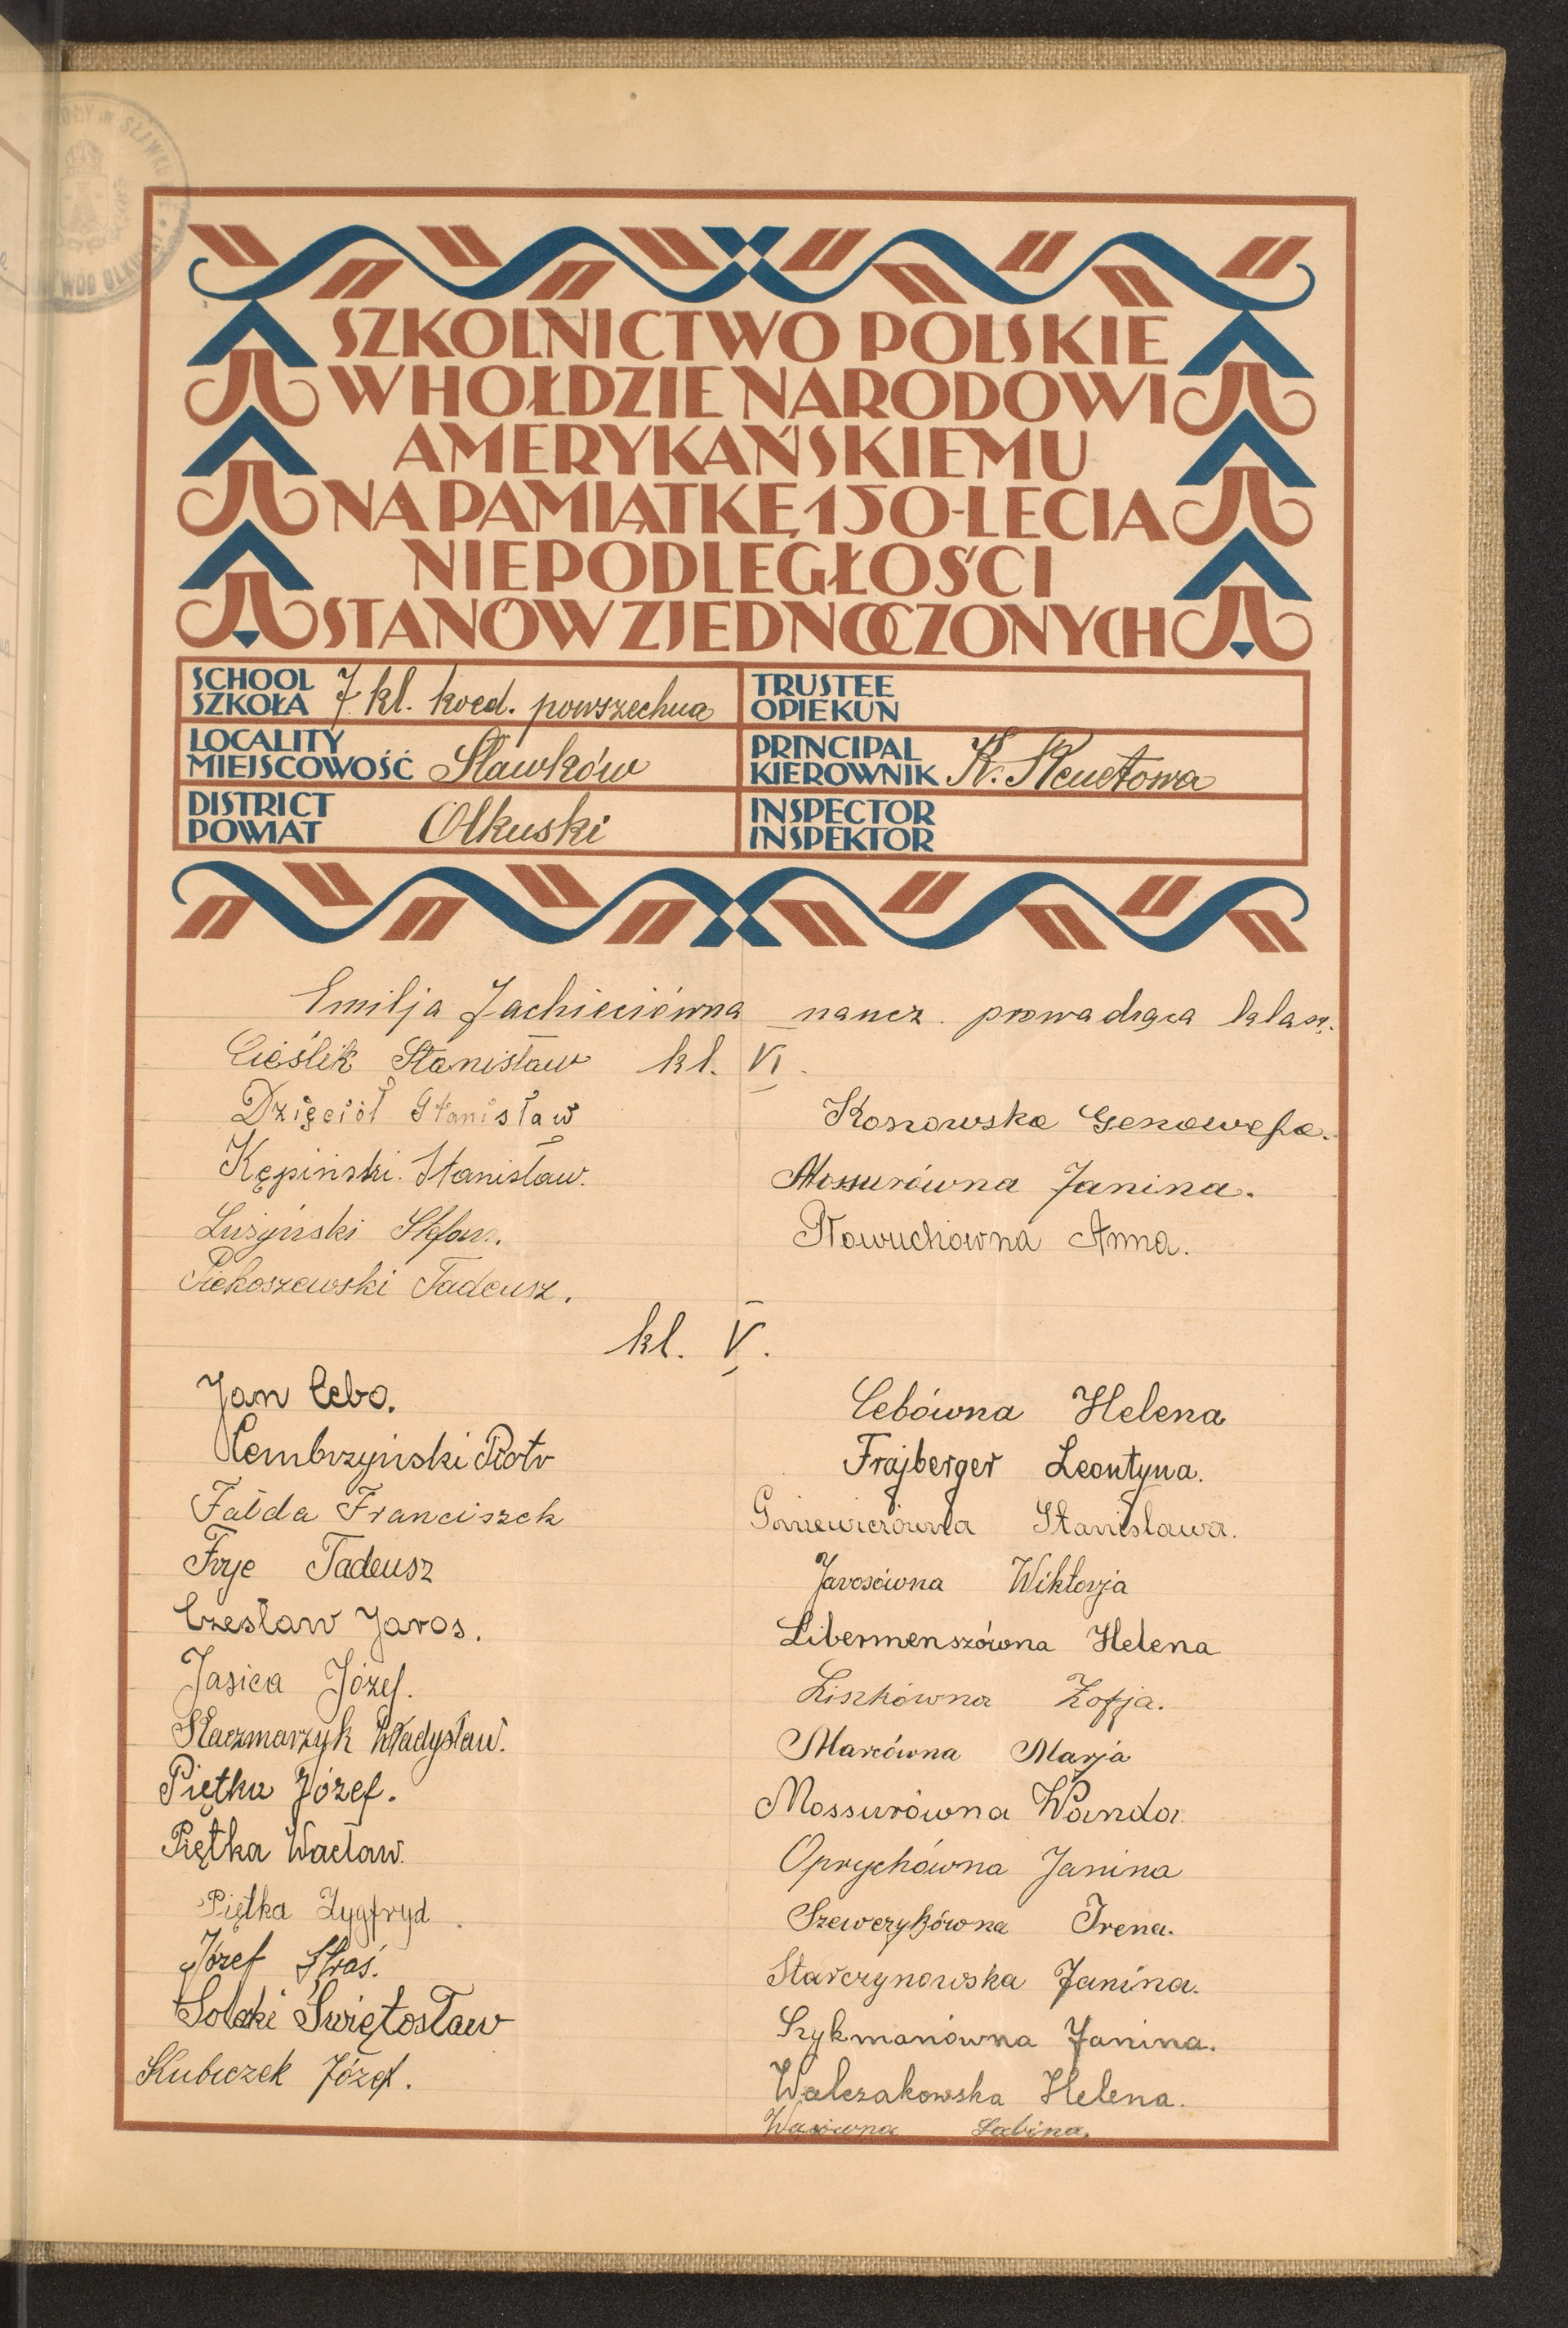 SZKOLNICTWO POLSKIE
W HOŁDZIE NARODOWI
AMERYKAŃSKIEMU
NA PAMIĄTKĘ 150-LECIA
NIEPODLEGŁOŚCI
STANÓW ZJEDNOCZONYCH
SCHOOL
SZKOŁA 7 kl. koed. powszechna
TRUSTEE
OPIEKUN
LOCALITY
MIEJSCOWOŚĆ Sławków
PRINCIPAL
KIEROWNIK K.
DISTRICT
POWIAT Olkuski
INSPECTOR
INSPEKTOR
Emilja Jachieciówna naucz. prowadząca klasę.
Cieślik Stanisław kl. VI.
Dzięcioł Stanisław
Kosnowska Genowefa.
Kępiński Stanisław.
Mossurówna Janina.
Luzyński Stefan.
Nowuchówna Anna.
Piekoszewski Tadeusz.
kl. V.
Jan Cebo.
Cebówna Helena
Dembrzyński Piotr
Frajberger Leontyna.
Fałda Franciszek
Goniewiczówna Stanisława.
Frye Tadeusz
Jarosówna Wiktorja
Czesław Jaros.
Libermenszówna Helena
Jasica Józef.
Liszkówna Zofja.
Kaczmarzyk Władysław.
Marcówna Marja
Piętka Józef.
Mossurówna Wanda
Piętka Wacław.
Oprychówna Janina
Piętka Zygfryd.
Szewczykówna Irena.
Józef Straś.
Starczynowska Janina.
Solecki Świętosław
Szykmanówna Janina.
Kubiczek Józef.
Walczakowska Helena.
Wąsiówna Sabina.